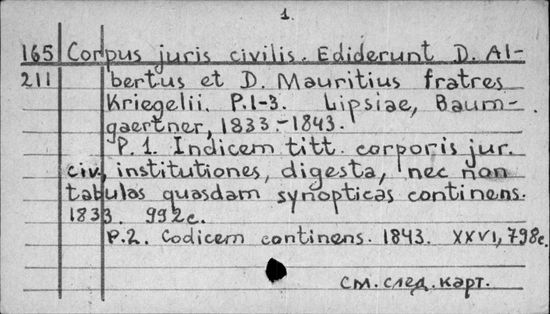 1.
165 Corpus juris civilis. Ediderunt D. Al-
211 bertus et D. Mauritius fratres
Kriegelii. P.1-3. Lipsiae, Baum-
gaertner, 1833.-1843.
P.1. Indicem titt. corporis jur.
civ., institutiones, digesta, nec non
tabulas quasdam synopticas continens.
1833. 992c.
P.2. Codicem continens. 1843. XXVI, 798c.
См. след. карт.